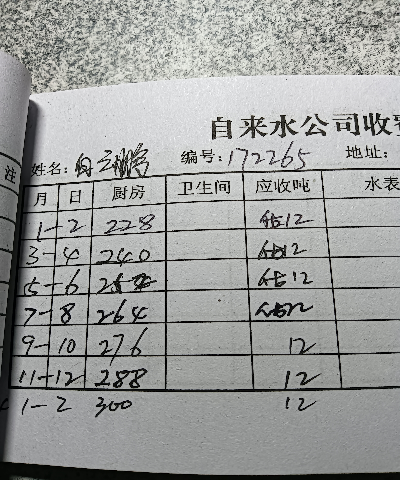 自来水公司收
姓名: 编号:172265 地址:
月 日 厨房 卫生间 应收吨 水表
1-2 228 12
3-4 240 12
5-6 12
7-8 264
9-10 276 12
11-12 288 12
1-2 300 12